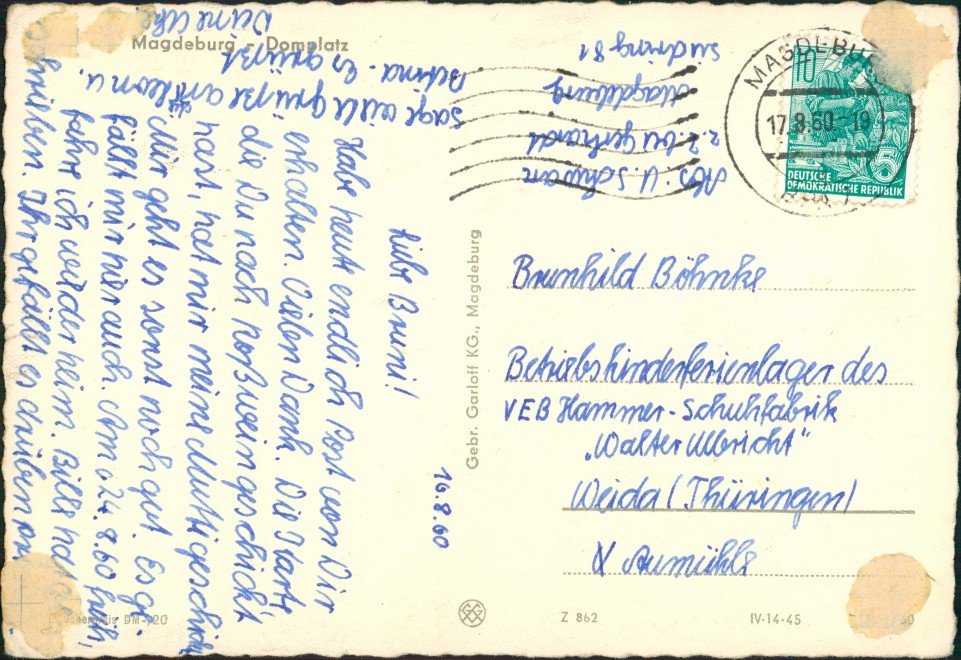 Magdeburg - Domplatz
16.8.60
Liebe Bruni!
Habe heute endlich Post von Dir
erhalten. Vielen Dank. Die Karte
die Du nach Roßwein geschickt
hast, hat mir meine Mutti geschickt
Mir geht es sonst noch gut. Es ge-
fällt mir hier auch. Am 24.8.60 früh,
fahre ich wieder heim. Bille hat
schrieben. Ihr gefällt es drüben
Sage viele Grüße an
Betina. Es grüßt
Deine
Gebr. Garloff KG., Magdeburg
Abs. U. Schwan
z.Z. bei Gerhardt
Magdeburg
Südring 81
MAGDEBURG
17.8.60-19
10
5
DEUTSCHE
DEMOKRATISCHE REPUBLIK
Brunhild Böhnke
Betriebskinderferienlager des
VEB Hammer-Schuhfabrik
„Walter Ulbricht"
Weida (Thüringen)
Aumühle
DM -,20
Z 862
IV-14-45